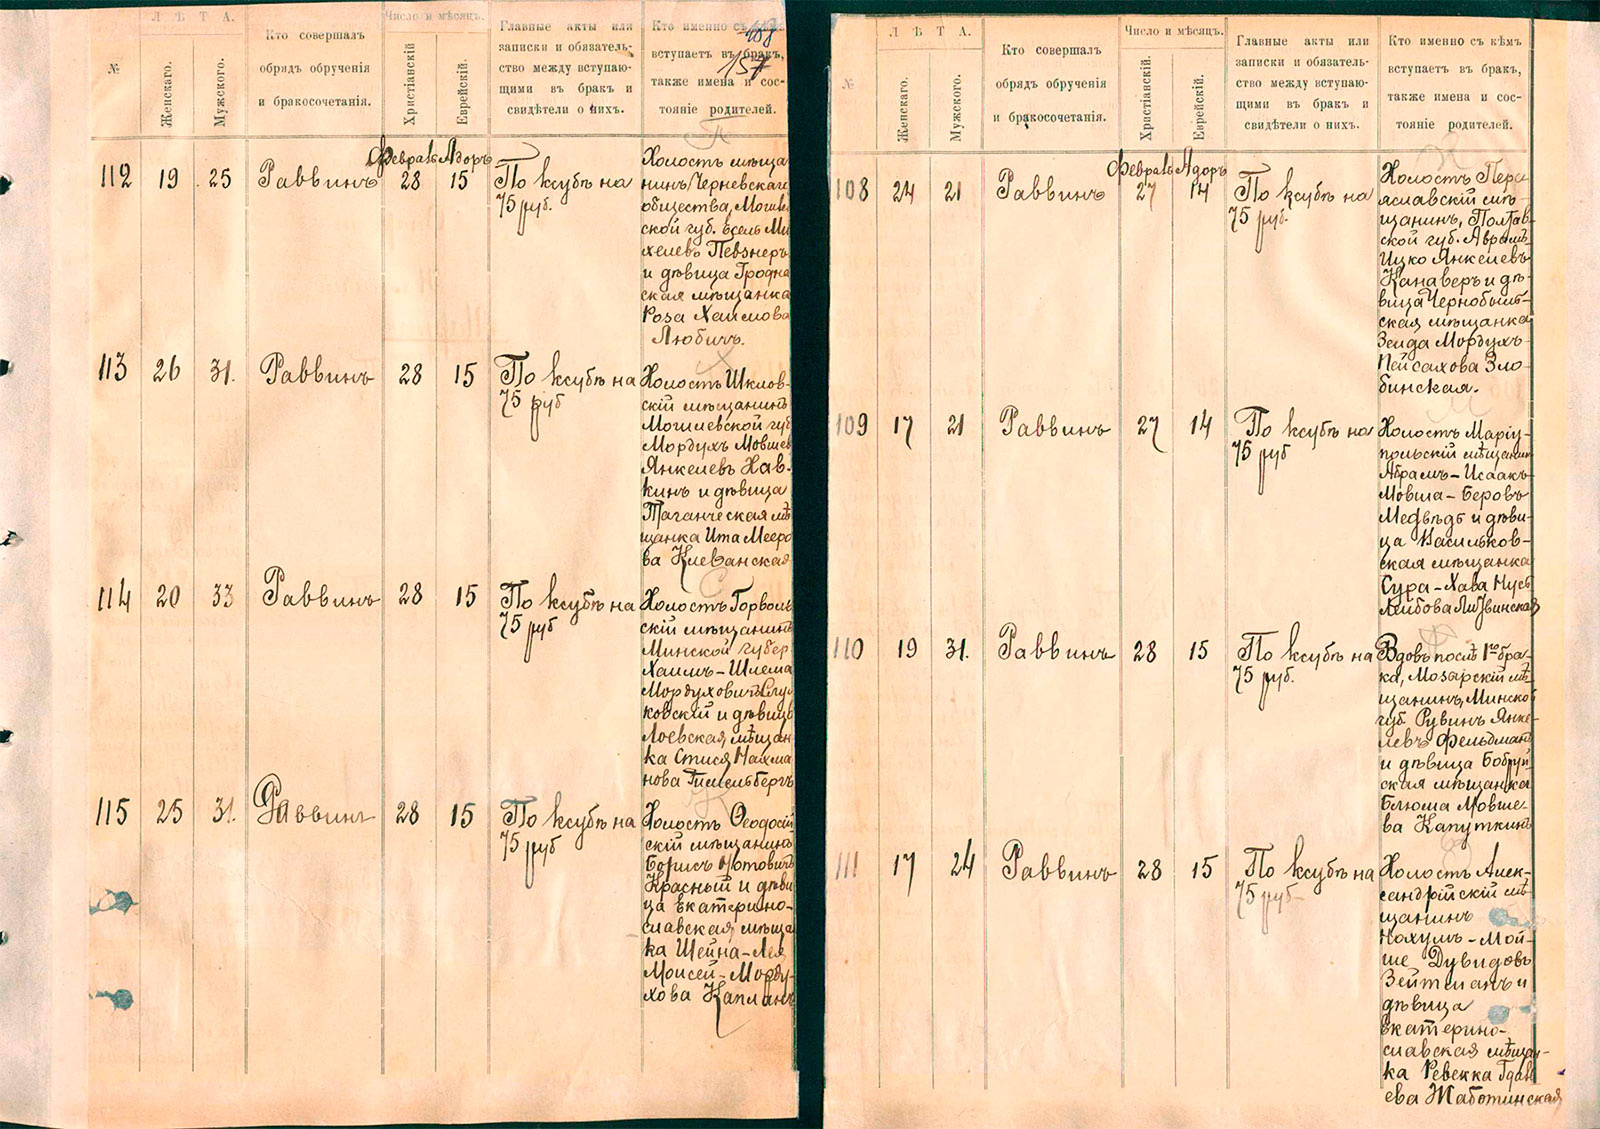 ЛѢТА.
№
Женскаго.
Мужского.
Кто совершалъ
обрядъ обрученія
и бракосочетанія.
Число и мѣсяцъ.
Христіанскій
Еврейскій.
Главные акты или
записки и обязатель-
ство между вступаю-
щими въ бракъ и
свидѣтели о нихъ.
Кто именно съ кѣмъ
вступаетъ въ бракъ,
также имена и сос-
тояніе родителей.
157
Февраль Адоръ
112 19 25 Раввинъ 28 15
По ксубѣ на
75 руб.
Холостъ мѣща
нинъ Черневскаго
общества, Могилев
ской губ. Есель Ми
хелевъ Певзнеръ
и дѣвица Гродне
ская мѣщанка
Роза Хаимова
Любичъ.
113 26 31. Раввинъ 28 15
По ксубѣ на
75 руб
Холостъ Шклов-
скій мѣщанинъ
Могилевской губ
Мордухъ Мовшев
Янкелевъ Хав-
кинъ и дѣвица
Таганческая мѣ
щанка Ита Мееро
ва Клеванская
114 20 33 Раввинъ 28 15
По ксубѣ на
75 руб
Холостъ Горволь
скій мѣщанинъ
Минской губер
Хаимъ-Шлема
Мордуховичъ Слу
ковскій и дѣвица
Лоевская мѣщан
ка Стися Нахма
нова Гимельбергъ
115 25 31. Раввинъ 28 15
По ксубѣ на
75 руб
Холостъ Ѳеодосій
скій мѣщанинъ
Борисъ Мотовичъ
Красный и дѣви
ца Екатерино-
славская мѣща
ка Шейна-Лея
Моисей-Морду-
хова Капланъ
ЛѢТА.
№
Женскаго.
Мужского.
Кто совершалъ
обрядъ обрученія
и бракосочетанія.
Число и мѣсяцъ.
Христіанскій.
Еврейскій.
Главные акты или
записки и обязатель-
ство между вступаю-
щими въ бракъ и
свидѣтели о нихъ.
Кто именно съ кѣмъ
вступаетъ въ бракъ,
также имена и сос-
тояніе родителей.
Февраль Адоръ
108 24 21 Раввинъ 27 14
По ксубѣ на
75 руб.
Холостъ Пере
яславскій мѣ-
щанинъ, Полтав-
ской губ. Аврамъ
Ицко Янкелевъ
Канаверъ и дѣ-
вица Чернобыль-
ская мѣщанка
Зелда Мордухъ
Пейсахова Зло-
бинская.
109 17 21 Раввинъ 27 14
По ксубѣ на
75 руб
Холостъ Маріу-
польскій мѣщанин
Абрамъ-Исаакъ
Мовша-Беровъ
Медвѣдь и дѣви-
ца Васильков-
ская мѣщанка
Сура-Хава Нусь
Лейбова Литвинская
110 19 31. Раввинъ 28 15
По ксубѣ на
75 руб.
Вдовъ послѣ 1го бра-
ка, Мозарскій мѣ
щанинъ, Минской
губ Рувинъ Янке-
левъ Фельдманъ
и дѣвица Бобруй
ская мѣщанка
Блюма Мовше-
ва Капуткинъ
111 17 24 Раввинъ 28 15
По ксубѣ на
75 руб
Холостъ Алек-
сандрійскій мѣ
щанинъ
Нохумъ-Мой-
ше Дувидовъ
Зейтманъ и
дѣвица
Екатерино-
славская мѣщан-
ка Ревекка Гдал
ева Жаботинская